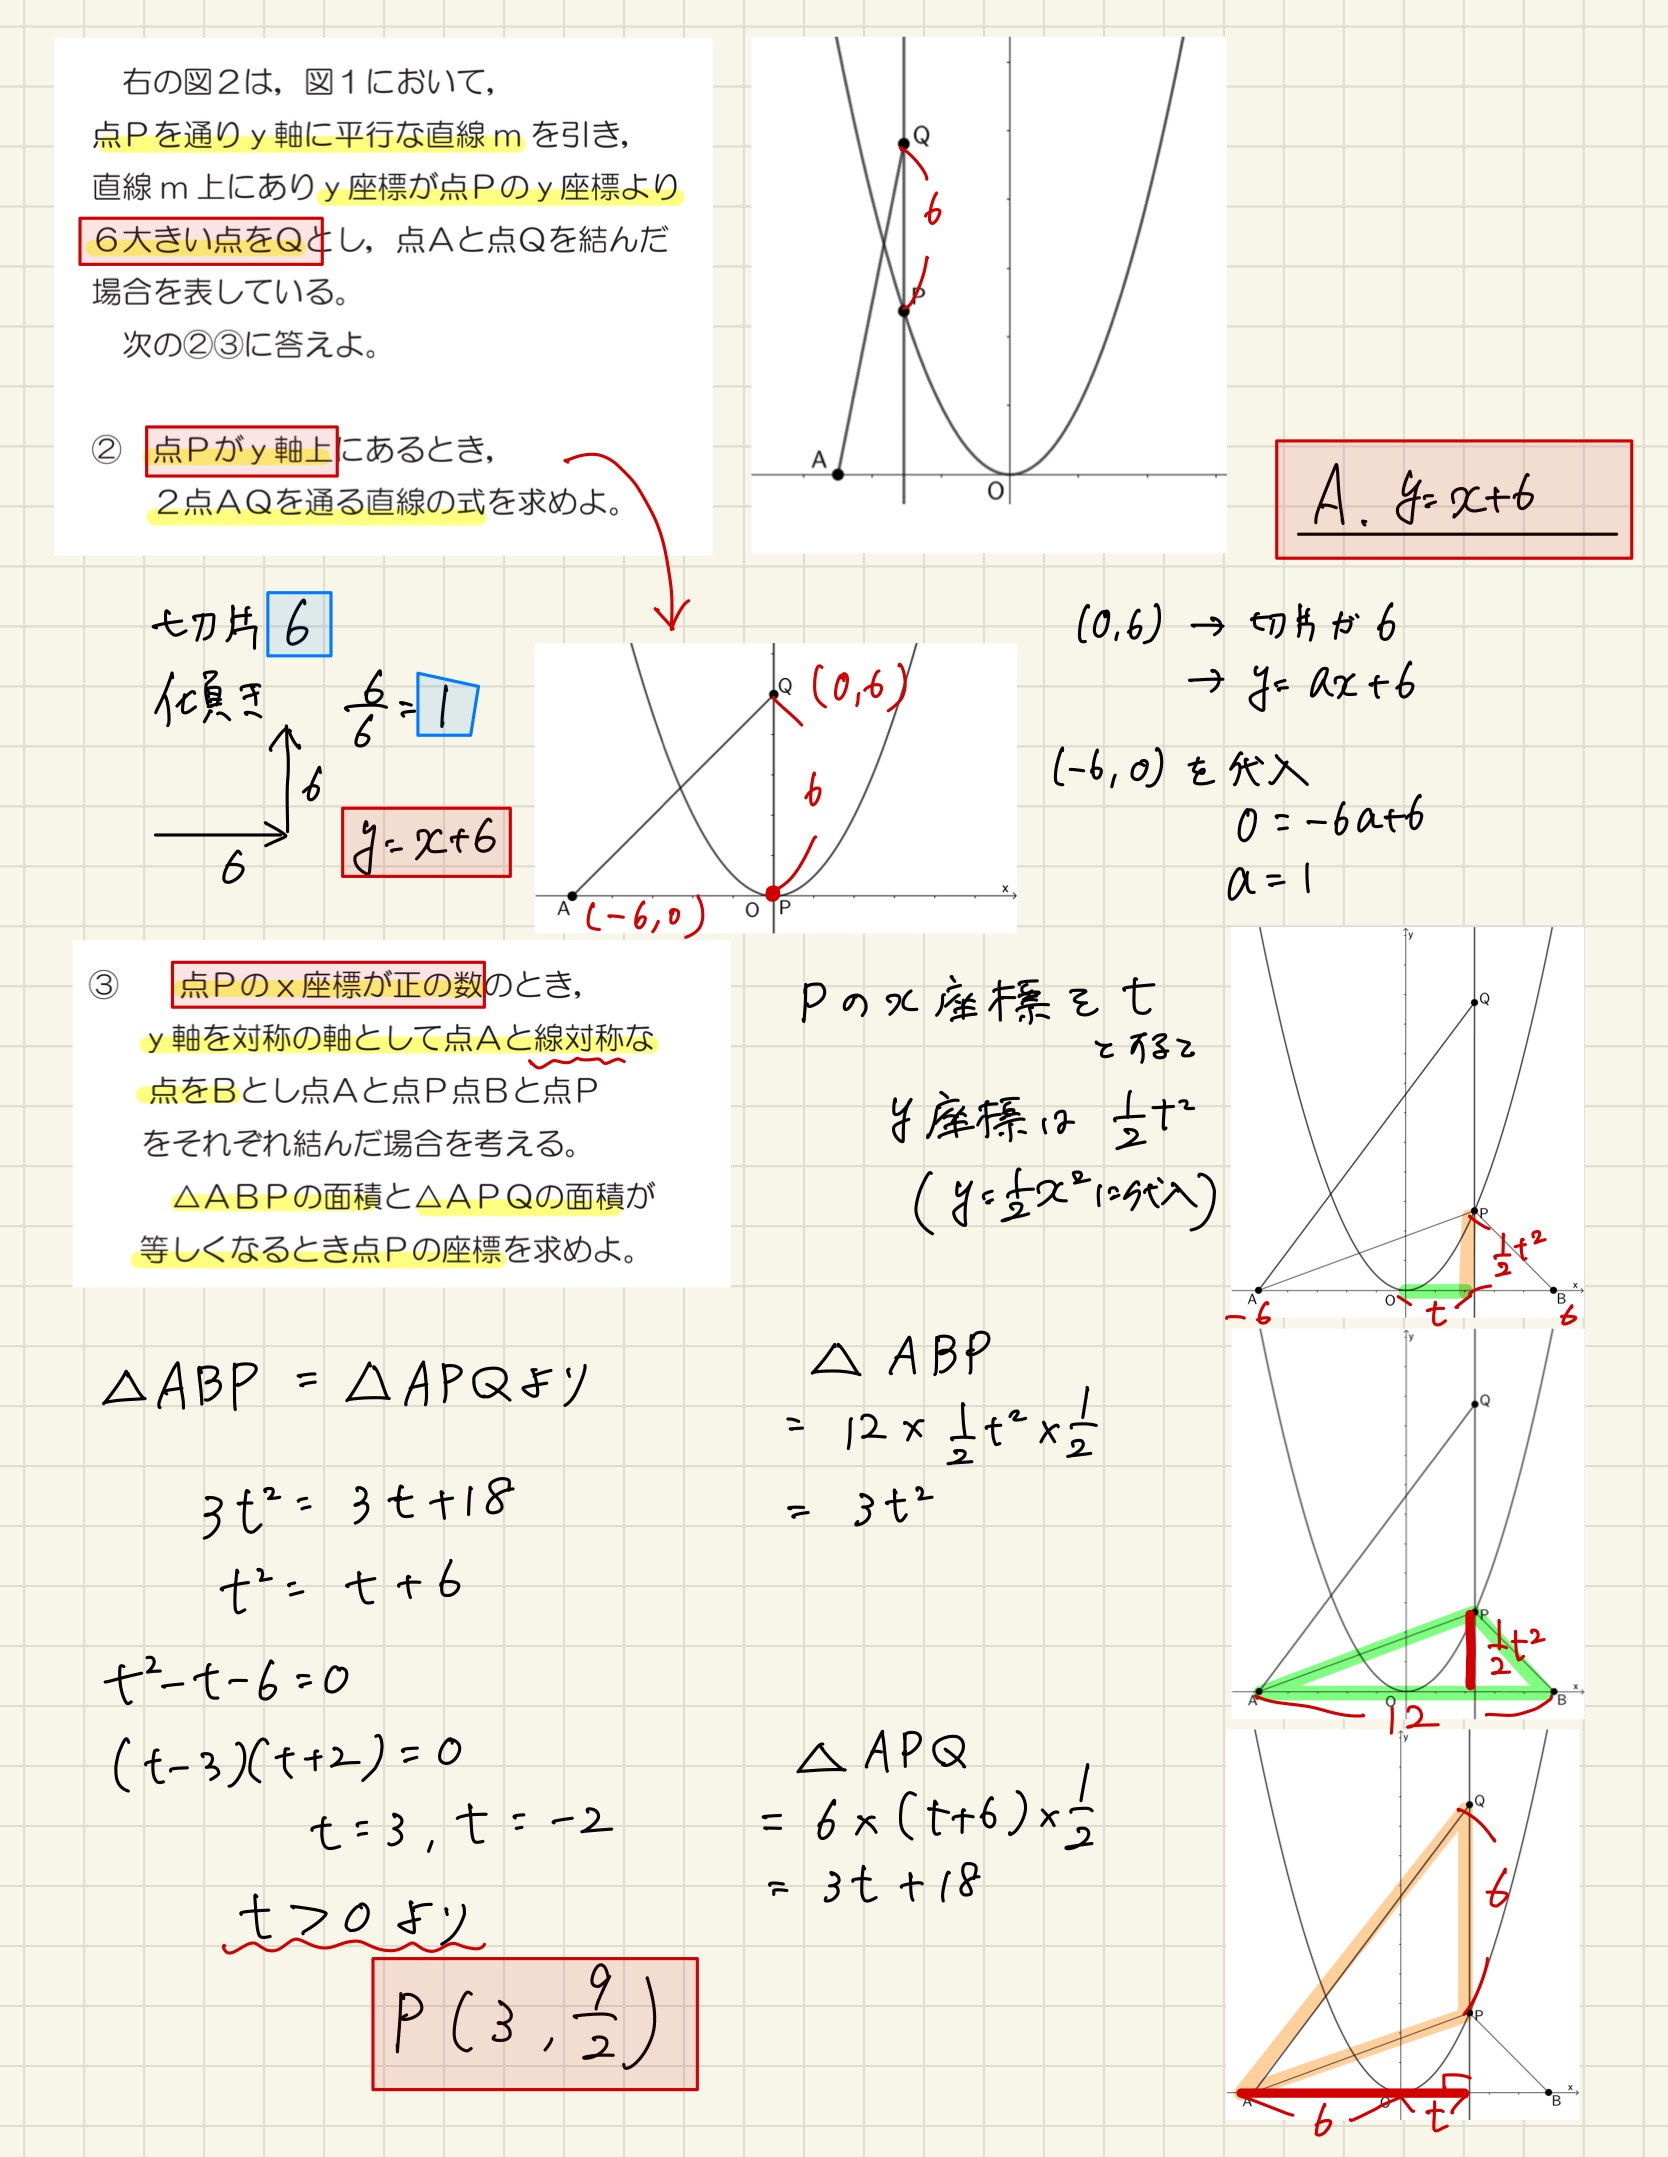 右の図２は，図１において，
点Ｐを通りｙ軸に平行な直線ｍを引き，
直線ｍ上にありｙ座標が点Ｐのｙ座標より
６大きい点をＱとし，点Ａと点Ｑを結んだ
場合を表している。
次の②③に答えよ。
② 点Ｐがｙ軸上にあるとき，
２点ＡＱを通る直線の式を求めよ。
Q
6
P
A
O
A. y=x+6
切片 6
傾き 6/6=1
6
6
y=x+6
Q (0,6)
6
A (-6,0) O P x
(0,6) → 切片が 6
→ y=ax+6
(-6,0) を代入
0=-6a+6
a=1
③ 点Ｐのｘ座標が正の数のとき，
ｙ軸を対称の軸として点Ａと線対称な
点をＢとし点Ａと点Ｐ点Ｂと点Ｐ
をそれぞれ結んだ場合を考える。
△ＡＢＰの面積と△ＡＰＱの面積が
等しくなるとき点Ｐの座標を求めよ。
Pのx座標をt
とすると
y座標は 1/2t²
(y=1/2x²に代入)
y
Q
P
1/2t²
A O B x
-6 t 6
△ABP = △APQより
3t² = 3t+18
t² = t+6
t²-t-6=0
(t-3)(t+2)=0
t=3, t=-2
t>0より
P(3, 9/2)
△ABP
= 12×1/2t²×1/2
= 3t²
△APQ
= 6×(t+6)×1/2
= 3t+18
y
Q
P
1/2t²
A O B x
12
y
Q
6
P
A O B x
6 t